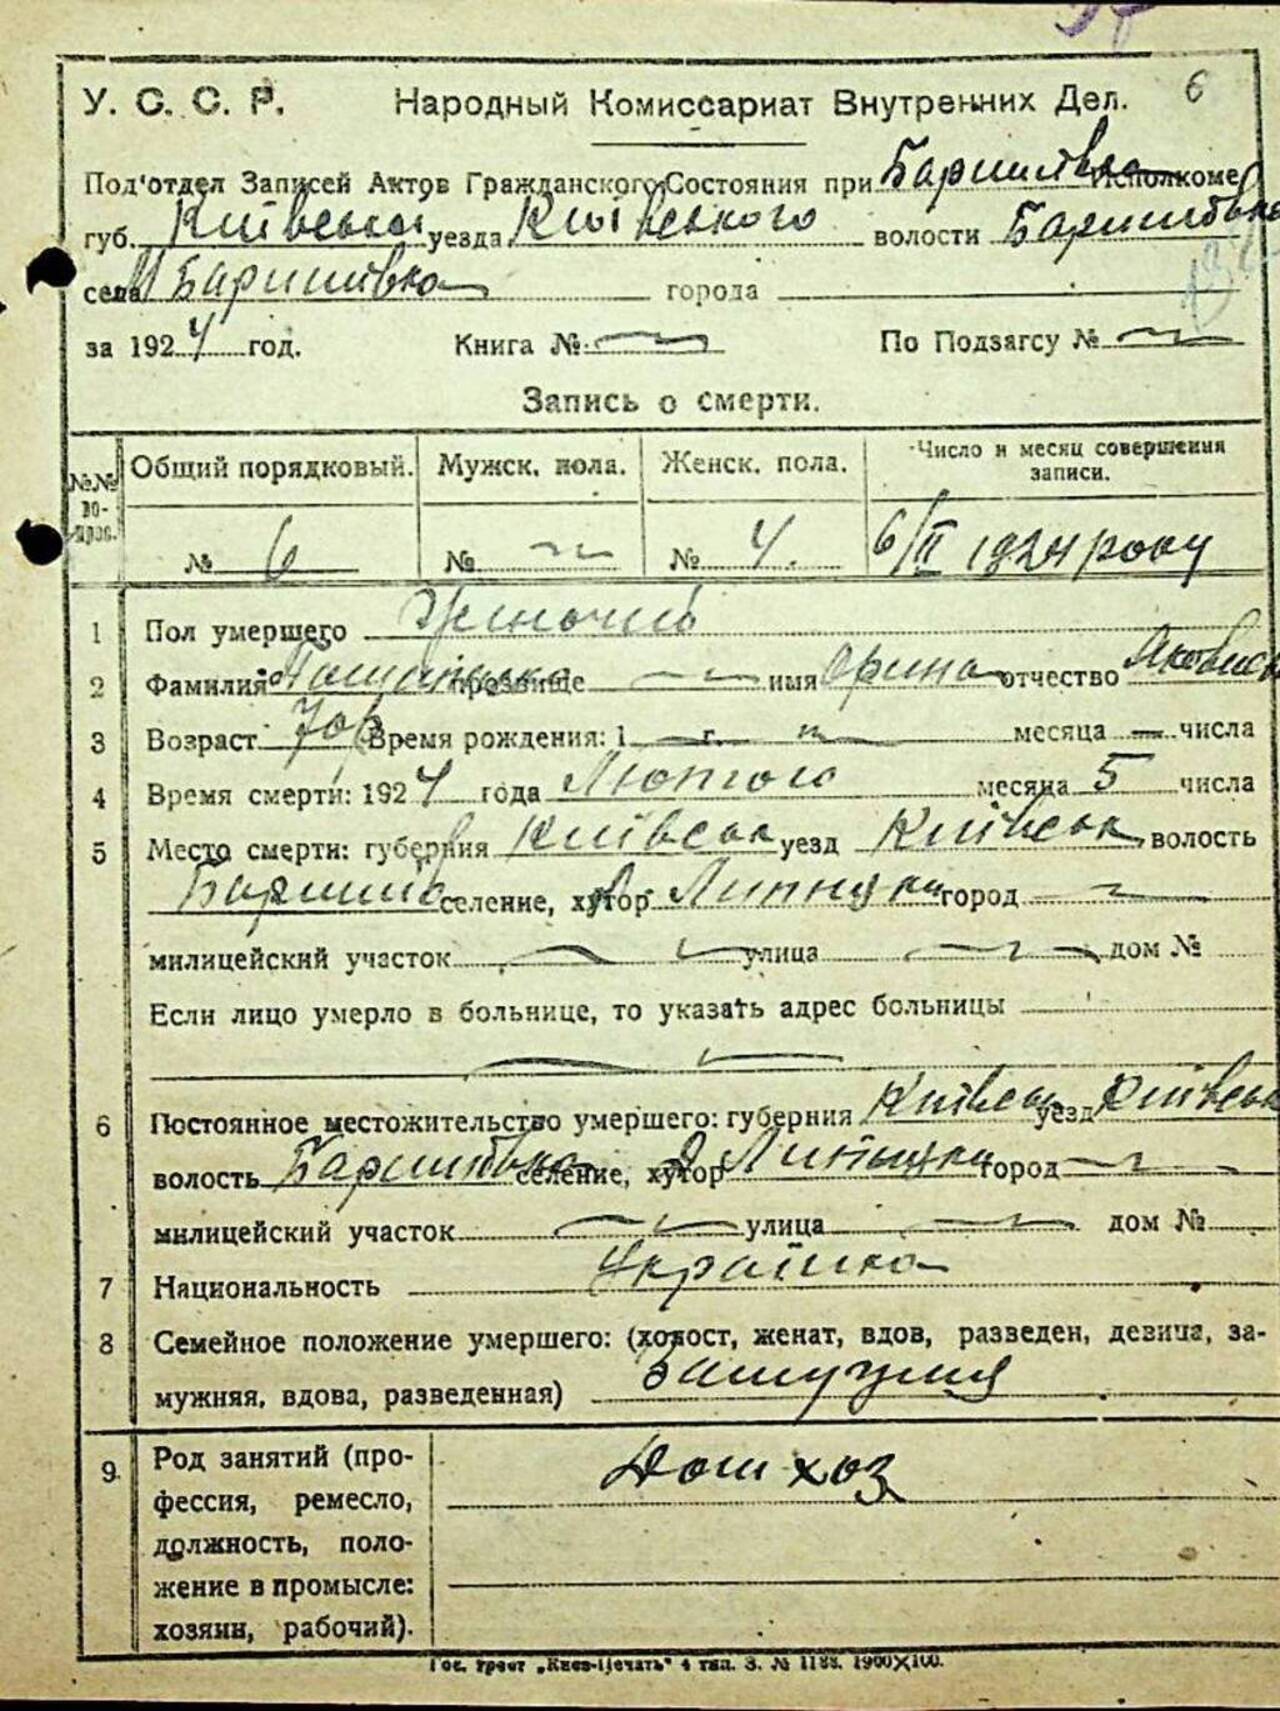 6
У. С. С. Р. Народный Комиссариат Внутренних Дел.
Под'отдел Записей Актов Гражданского Состояния при Баришівка Исполкоме
губ. Київська уезда Київського волости Баришівка
села М Баришівка города
за 1924 год. Книга № По Подзагсу №
Запись о смерти.
№№ во-прос. Общий порядковый. Мужск. пола. Женск. пола. Число и месяц совершения записи.
№ 6 № № 4. 6/II 1924 року
1 Пол умершего Жіночий
2 Фамилия прозвище имя Орина отчество
3 Возраст 70 р Время рождения: 1 г. месяца числа
4 Время смерти: 1924 года Лютого месяца 5 числа
5 Место смерти: губерния Київськ уезд Київськ волость
Баришів селение, хутор город
милицейский участок улица дом №
Если лицо умерло в больнице, то указать адрес больницы
6 Постоянное местожительство умершего: губерния Київськ уезд Київськ
волость Баришівка селение, хутор город
милицейский участок улица дом №
7 Национальность Українка
8 Семейное положение умершего: (холост, женат, вдов, разведен, девица, за-
мужняя, вдова, разведенная) Замужня
9. Род занятий (про- Дом хоз
фессия, ремесло,
должность, поло-
жение в промысле:
хозяин, рабочий).
Гос. трест „Киев-Печать" 4 тип. З. № 1188. 1900×100.